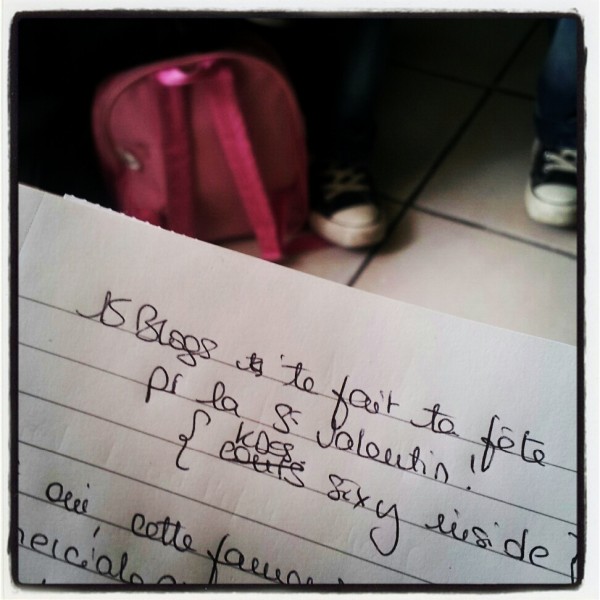 KS Blogs te fait ta fête
pr la St Valentin !
{ KDOS sexy inside }
oui cette fameu
merciale